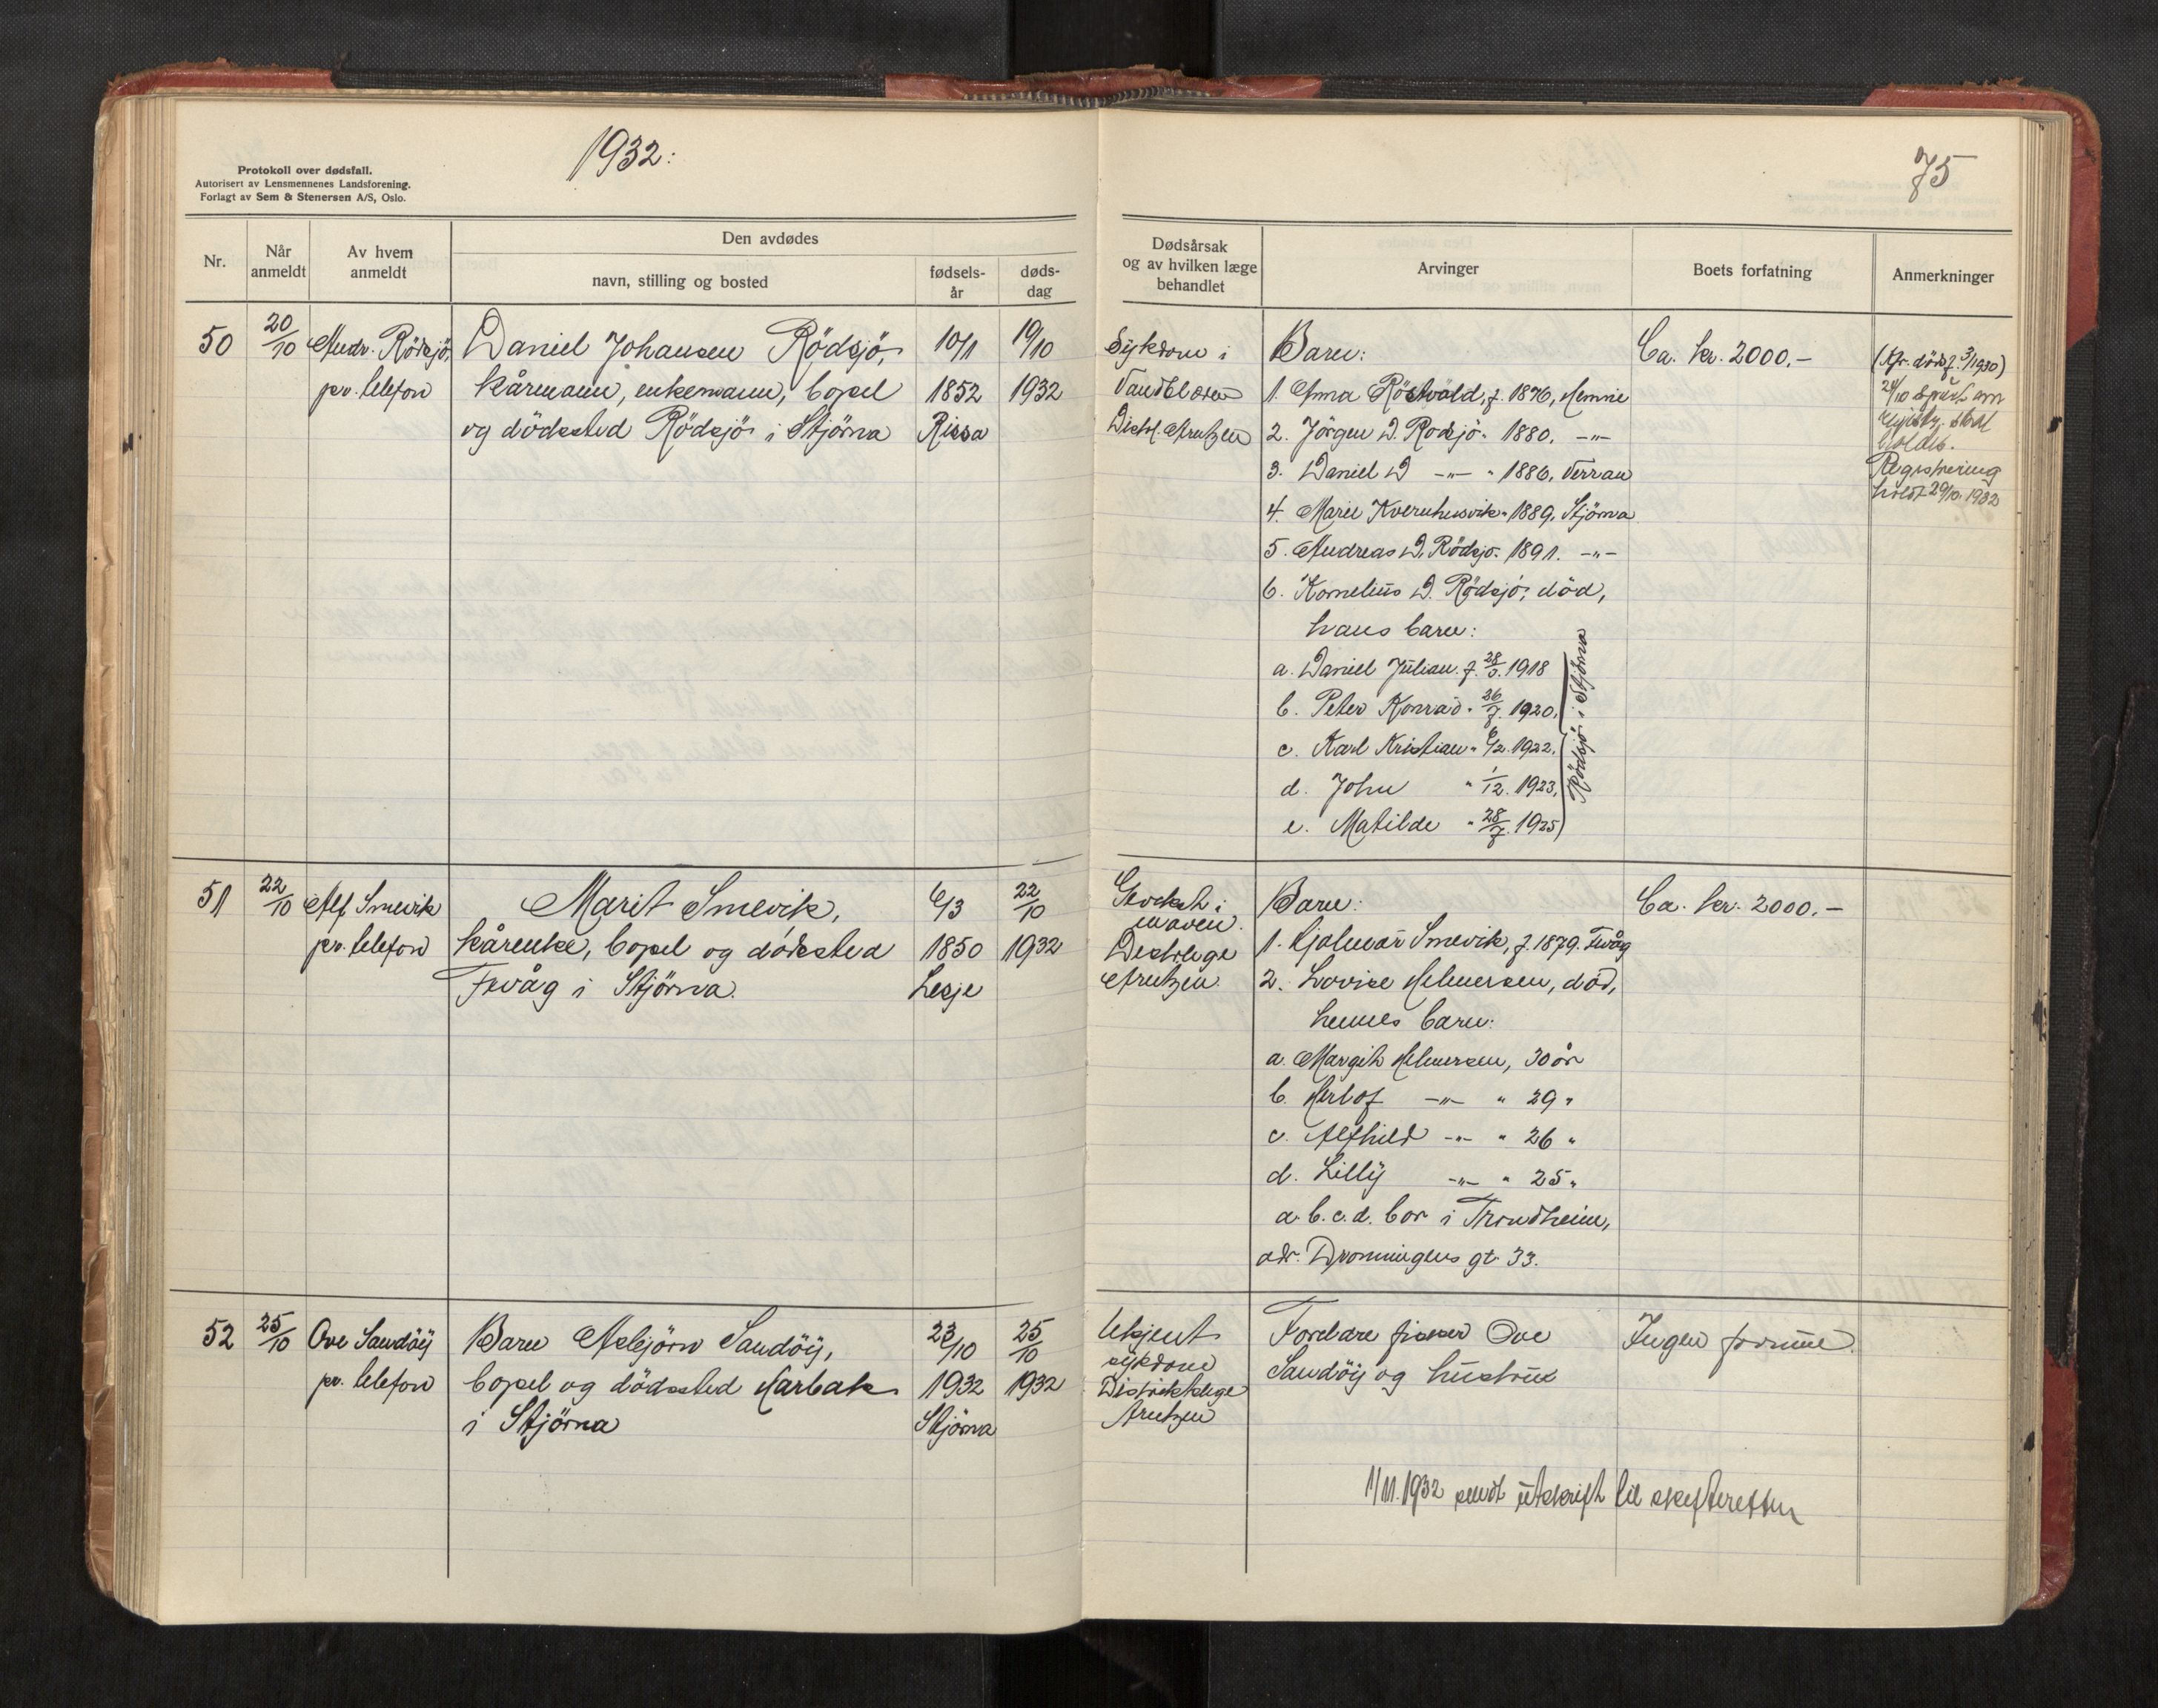 1932:
75
Protokoll over dødsfall.
Autorisert av Lensmennenes Landsforening.
Forlagt av Sem & Stenersen A/S, Oslo.
Nr.
Når anmeldt
Av hvem anmeldt
Den avdødes
navn, stilling og bosted
fødselsår
dødsdag
Dødsårsak og av hvilken læge behandlet
Arvinger
Boets forfatning
Anmerkninger
50 20/10 Andr. Rödsjö, Daniel Johansen Rödsjö, 10/1 19/10
pr. telefon kårmann, enkemann, bopel 1852 1932
og dödssted Rödsjö i Stjörna Rissa
Sykdom i
Vandblæren
Distrl. Arntzen
Barn:
1. Anna Röstvold, f. 1876, Hemne
2. Jörgen D. Rodsjö " 1880. -"-
3. Daniel D -"- " 1886, Verran
4. Marie Kvernhusvik " 1889, Stjörna
5. Andreas D. Rödsjö " 1891. -"-
6. Kornelius D. Rödsjö, död,
hans barn:
a. Daniel Julian f. 28/3. 1918
b. Peter Konrad " 26/7. 1920,
c. Karl Kristian " 6/2. 1922,
d. John " 1/12. 1923,
e. Matilde " 28/7. 1925
Rödsjö i Stjörna
Ca. kr. 2000.-
24/10
Registrering
holdt 29/10. 1932
51 22/10 Alf Smevik Marit Smevik, 6/3 22/10
pr. telefon kårenke, bopel og dödssted 1850 1932
Fevåg i Stjörna. Lesje
i
maven.
Distr.læge
Arntzen.
Barn:
1. Hjalmar Smevik, f. 1879. Fevåg
2. Lovise Helmersen, död,
hennes barn:
a. Margith Helmersen, 30 år
b. Herlof -"- " 29 "
c. Alfhild -"- " 26 "
d. Lilly -"- " 25 "
a. b. c. d. bor i Trondheim,
adr. Dronningens gt. 33.
Ca. kr. 2000.-
52 25/10 Ove Sandöy Barn Asbjörn Sandöy, 23/10 25/10
pr. telefon bopel og dödssted Harbak 1932 1932
i Stjörna Stjörna
Ukjent
sykdom
Distriktslæge
Arntzen
Foreldre fisker Ove
Sandöy og hustru
Ingen formue.
1/11. 1932 sendt utskrift til skifteretten